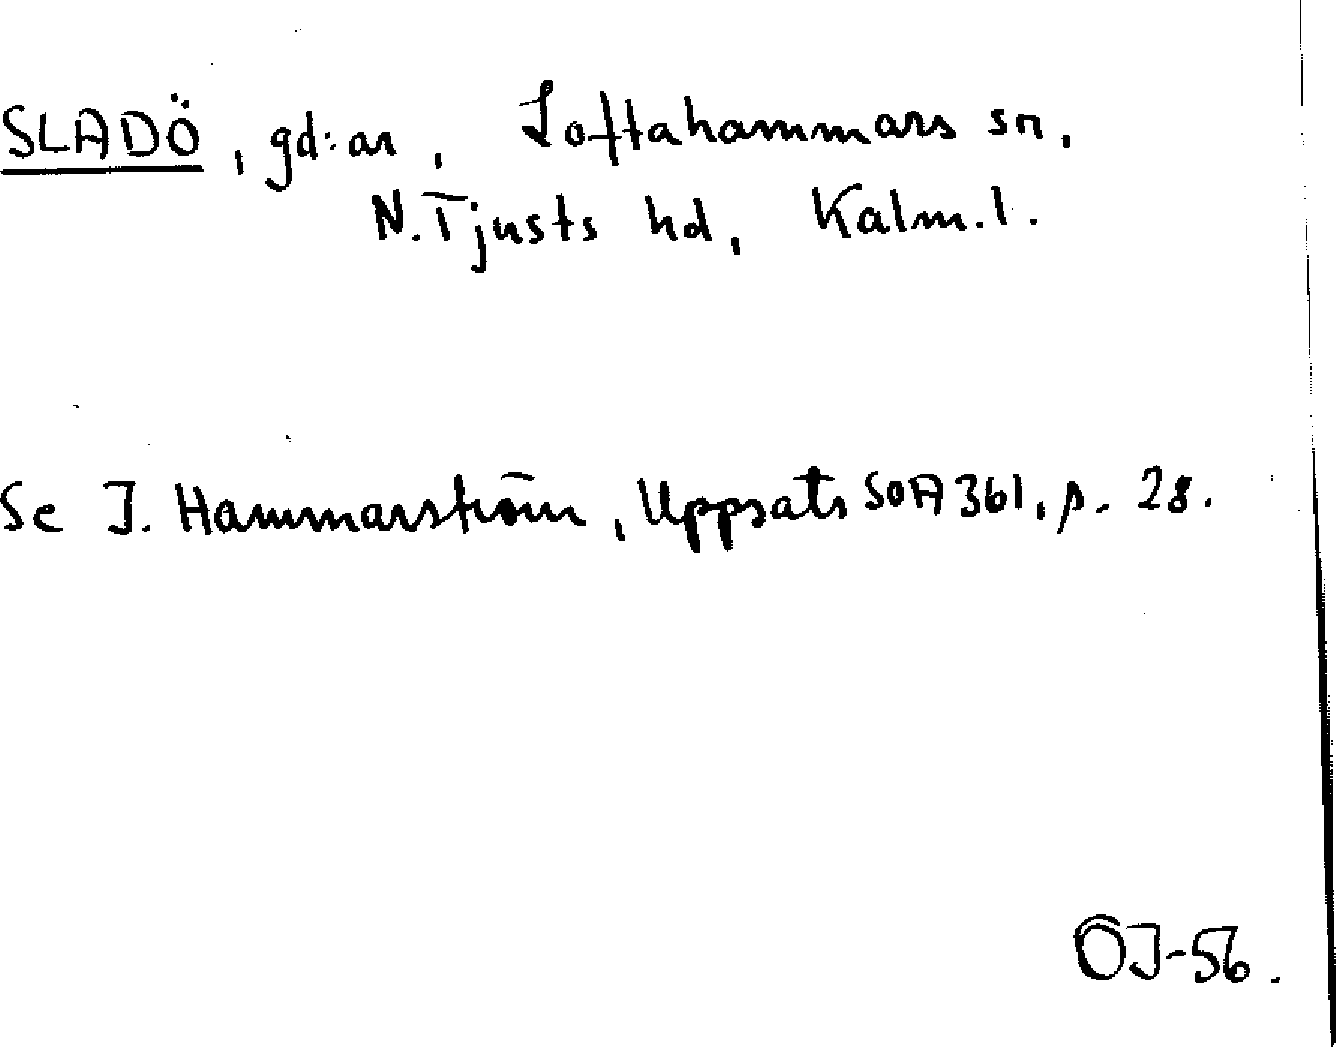 SLADÖ, gd:ar, Loftahammars sn,
N. Tjusts hd, Kalm. l.
Se I. Hammarström, Uppsats SOA 361, p. 28.
ÖJ-56.